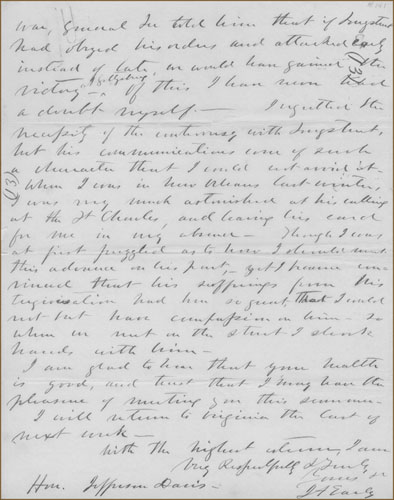 war, General Lee told him that if Longstreet
had obeyed his orders and attacked early
instead of late, we would have gained the
victory at Gettysburg. Of this I have never had
a doubt myself. — I regretted the
necessity of the controversy with Longstreet,
but his communications were of such
a character that I could not avoid it.
When I was in New Orleans last winter,
I was very much astonished at his calling
at the St Charles, and leaving his card
for me in my absence — Though I was
at first puzzled as to how I should meet
this advance on his part, yet I became con-
vinced that his sufferings from his
had been so great that I could
not but have compassion on him — so
when we met in the street I shook
hands with him —
I am glad to hear that your health
is good, and trust that I may have the
pleasure of meeting you this summer.
I will return to Virginia the last of
next week —
With the highest esteem, I am
Very Respectfully & Truly
Yours
J A Early
Hon. Jefferson Davis —
(3)
(3)